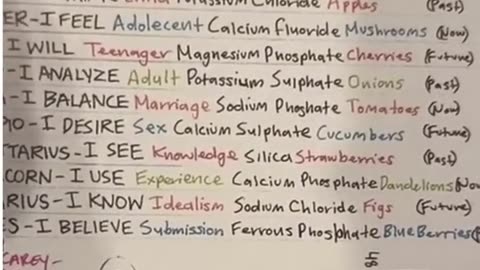 Potassium Chloride Apples (Past)
ER-I FEEL Adolecent Calcium Fluoride Mushrooms (Now)
I WILL Teenager Magnesium Phosphate Cherries (Future)
-I ANALYZE Adult Potassium Sulphate Onions (Past)
-I BALANCE Marriage Sodium Phosphate Tomatoes (Now)
IO-I DESIRE Sex Calcium Sulphate Cucumbers (Future)
TTARIUS-I SEE Knowledge Silica Strawberries (Past)
CORN-I USE Experience Calcium Phosphate Dandelions Now
RIUS-I KNOW Idealism Sodium Chloride Figs (Future)
ES-I BELIEVE Submission Ferrous Phosphate BlueBerries
CAREY-